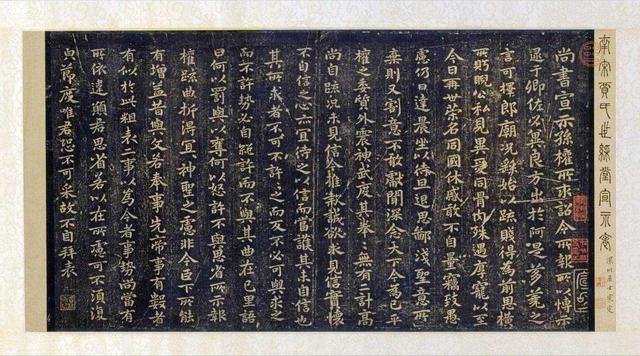 南宋賈氏世綵堂宣示表
尚書宣示孫權所求詔令所報所以博示
逮于卿佐必冀良方出於阿是芻蕘之
言可擇郎廟況繇始以疏賤得為前恩橫
所盼睨公私見異愛同骨肉殊遇厚寵以至
今日再世榮名同國休慼敢不自量竊致愚
慮仍日達晨坐以待旦退思鄙淺聖意所
棄則又割意不敢獻聞深念天下今為已平
權之委質外震神武度其拳拳無有二計高
尚自疏況未見信今推款誠欲求見信實懷
不自信之心亦宜待之以信而當護其未自信也
其所求者不可不許許之而反不必可與求之
而不許勢必自絕許而不與其曲在己里語
曰何以罰與以奪何以怒許不與思省所示報
權疏曲折得宜宜神聖之慮非今臣下所能
有增益昔與文若奉事先帝事有數者
有似於此粗表二事以為今者事勢尚當有
所依違願君思省若以在所慮可不須復
節度唯君恐不可采故不自拜表